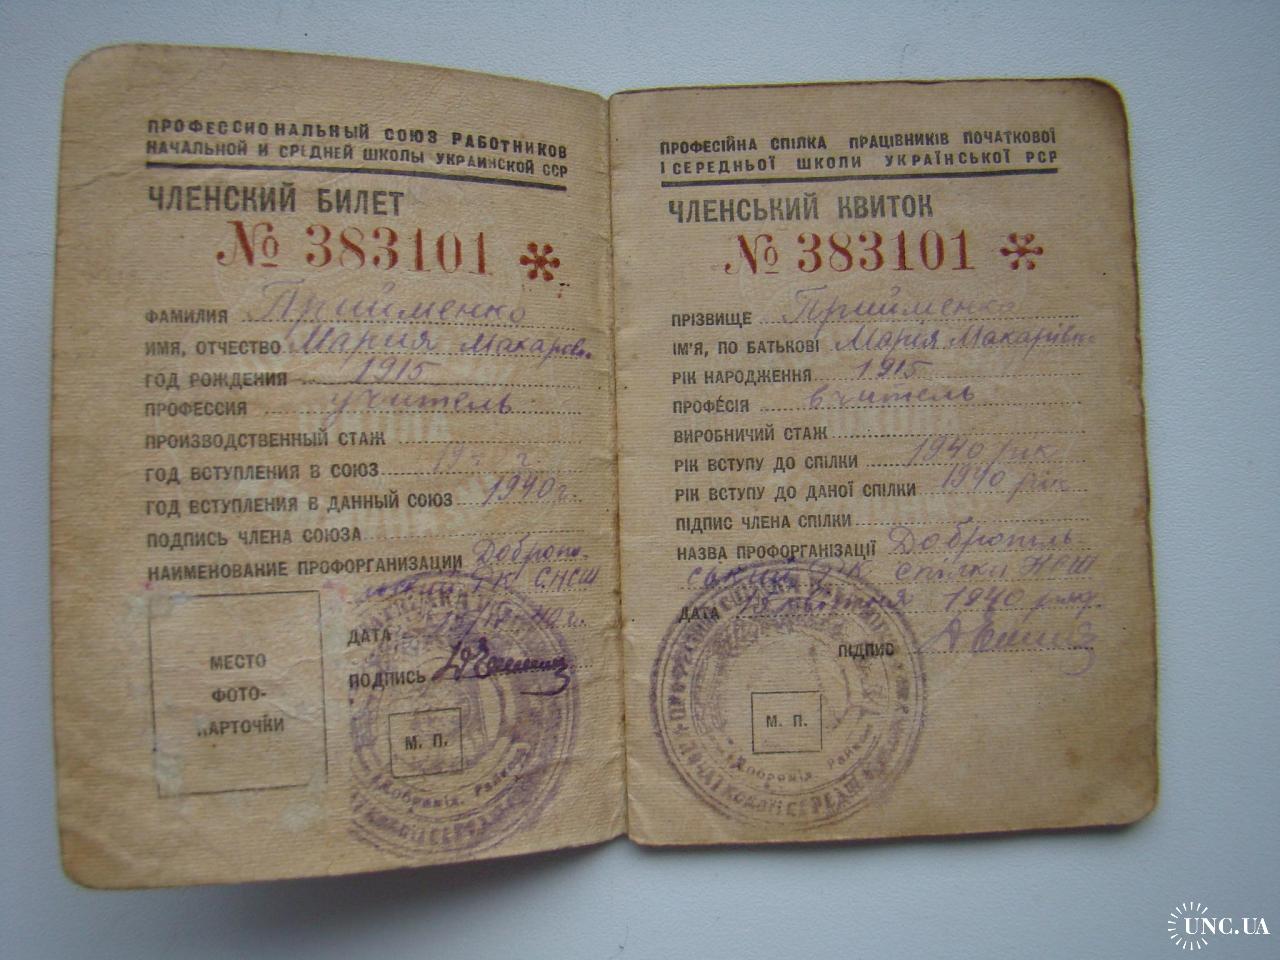 ПРОФЕССИОНАЛЬНЫЙ СОЮЗ РАБОТНИКОВ
НАЧАЛЬНОЙ И СРЕДНЕЙ ШКОЛЫ УКРАИНСКОЙ ССР
ЧЛЕНСКИЙ БИЛЕТ
№ 383101
ФАМИЛИЯ Прийменко
ИМЯ, ОТЧЕСТВО Мария Макаровн
ГОД РОЖДЕНИЯ 1915
ПРОФЕССИЯ учитель
ПРОИЗВОДСТВЕННЫЙ СТАЖ
ГОД ВСТУПЛЕНИЯ В СОЮЗ
ГОД ВСТУПЛЕНИЯ В ДАННЫЙ СОЮЗ 1940 г.
ПОДПИСЬ ЧЛЕНА СОЮЗА
НАИМЕНОВАНИЕ ПРОФОРГАНИЗАЦИИ Доброполь
РК СНСШ
ДАТА
ПОДПИСЬ
МЕСТО
ФОТО-
КАРТОЧКИ
М. П.
ПРОФЕСІЙНА СПІЛКА ПРАЦІВНИКІВ ПОЧАТКОВОЇ
І СЕРЕДНЬОЇ ШКОЛИ УКРАЇНСЬКОЇ РСР
ЧЛЕНСЬКИЙ КВИТОК
№ 383101
ПРІЗВИЩЕ Прийменко
ІМ'Я, ПО БАТЬКОВІ Мария Макарівн
РІК НАРОДЖЕННЯ 1915
ПРОФЕ́СІЯ вчитель
ВИРОБНИЧИЙ СТАЖ
РІК ВСТУПУ ДО СПІЛКИ 1940 рік
РІК ВСТУПУ ДО ДАНОЇ СПІЛКИ 1940 рік
ПІДПИС ЧЛЕНА СПІЛКИ
НАЗВА ПРОФОРГАНІЗАЦІЇ Добропіль
ський РК спілки НСШ
ДАТА 15 квітня 1940 року.
ПІДПИС
М. П.
UNC.UA